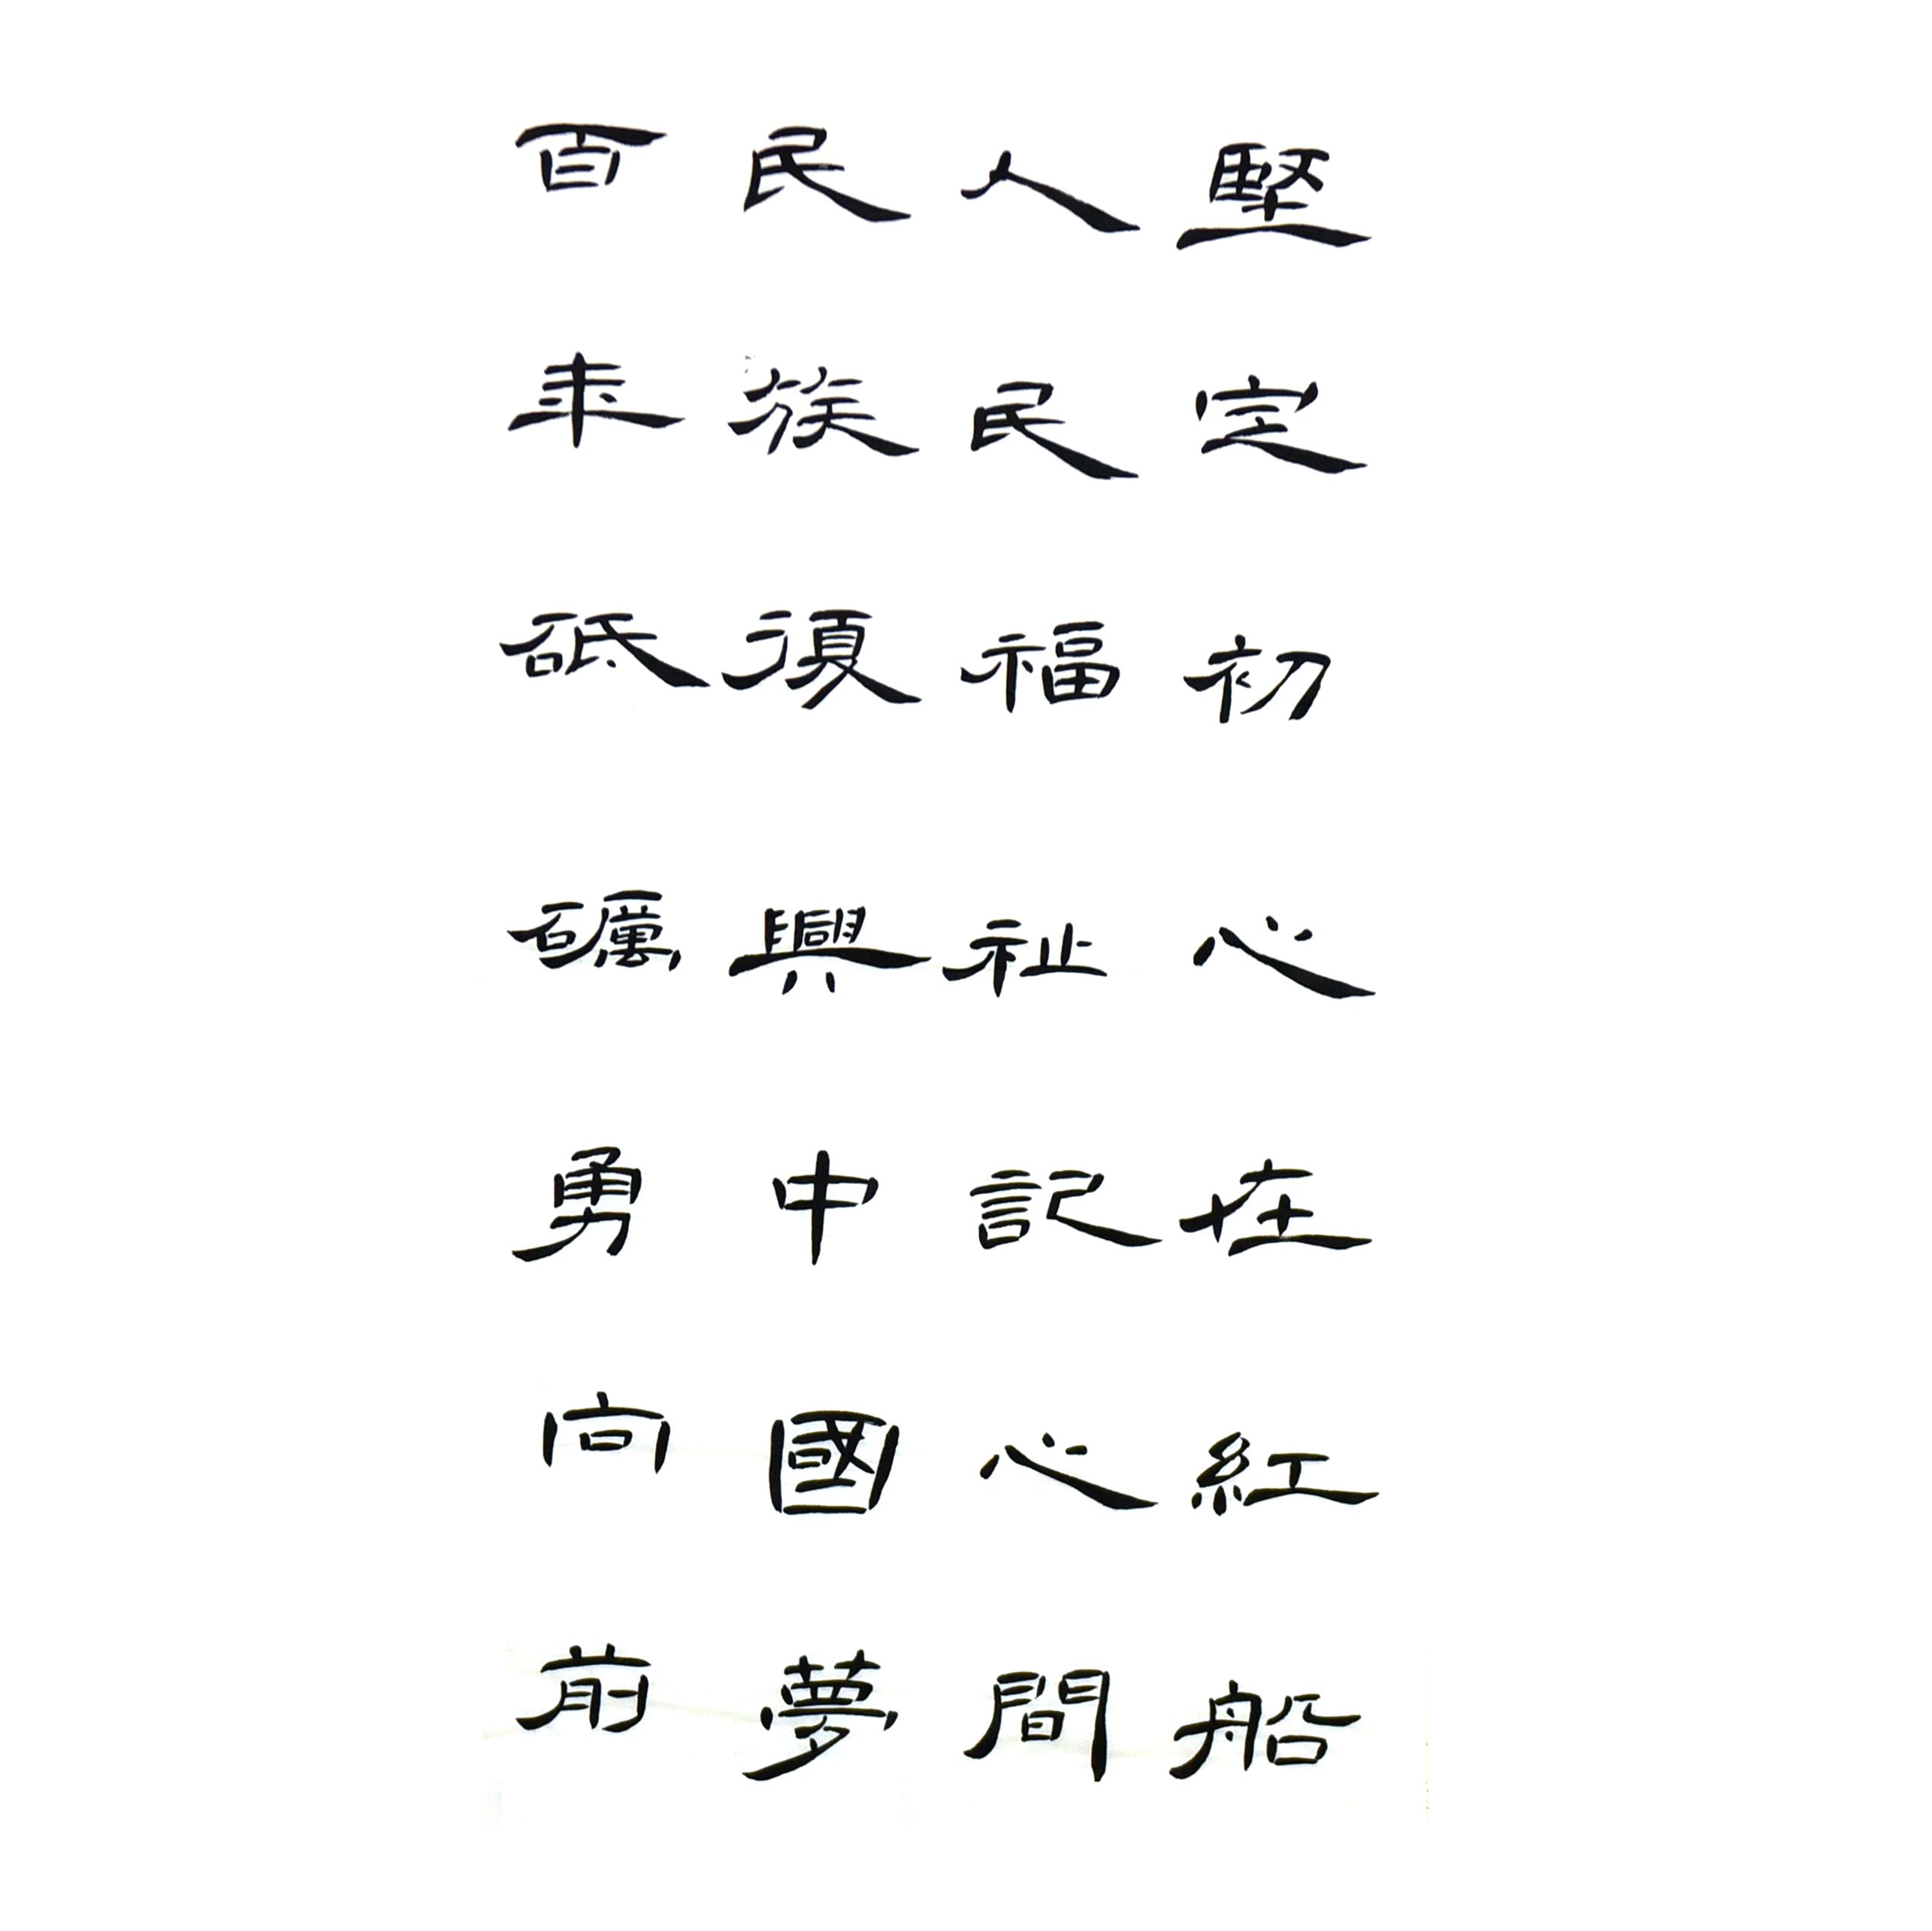 堅定初心在紅船
人民福祉記心間
民族復興中國夢
百年砥礪勇向前